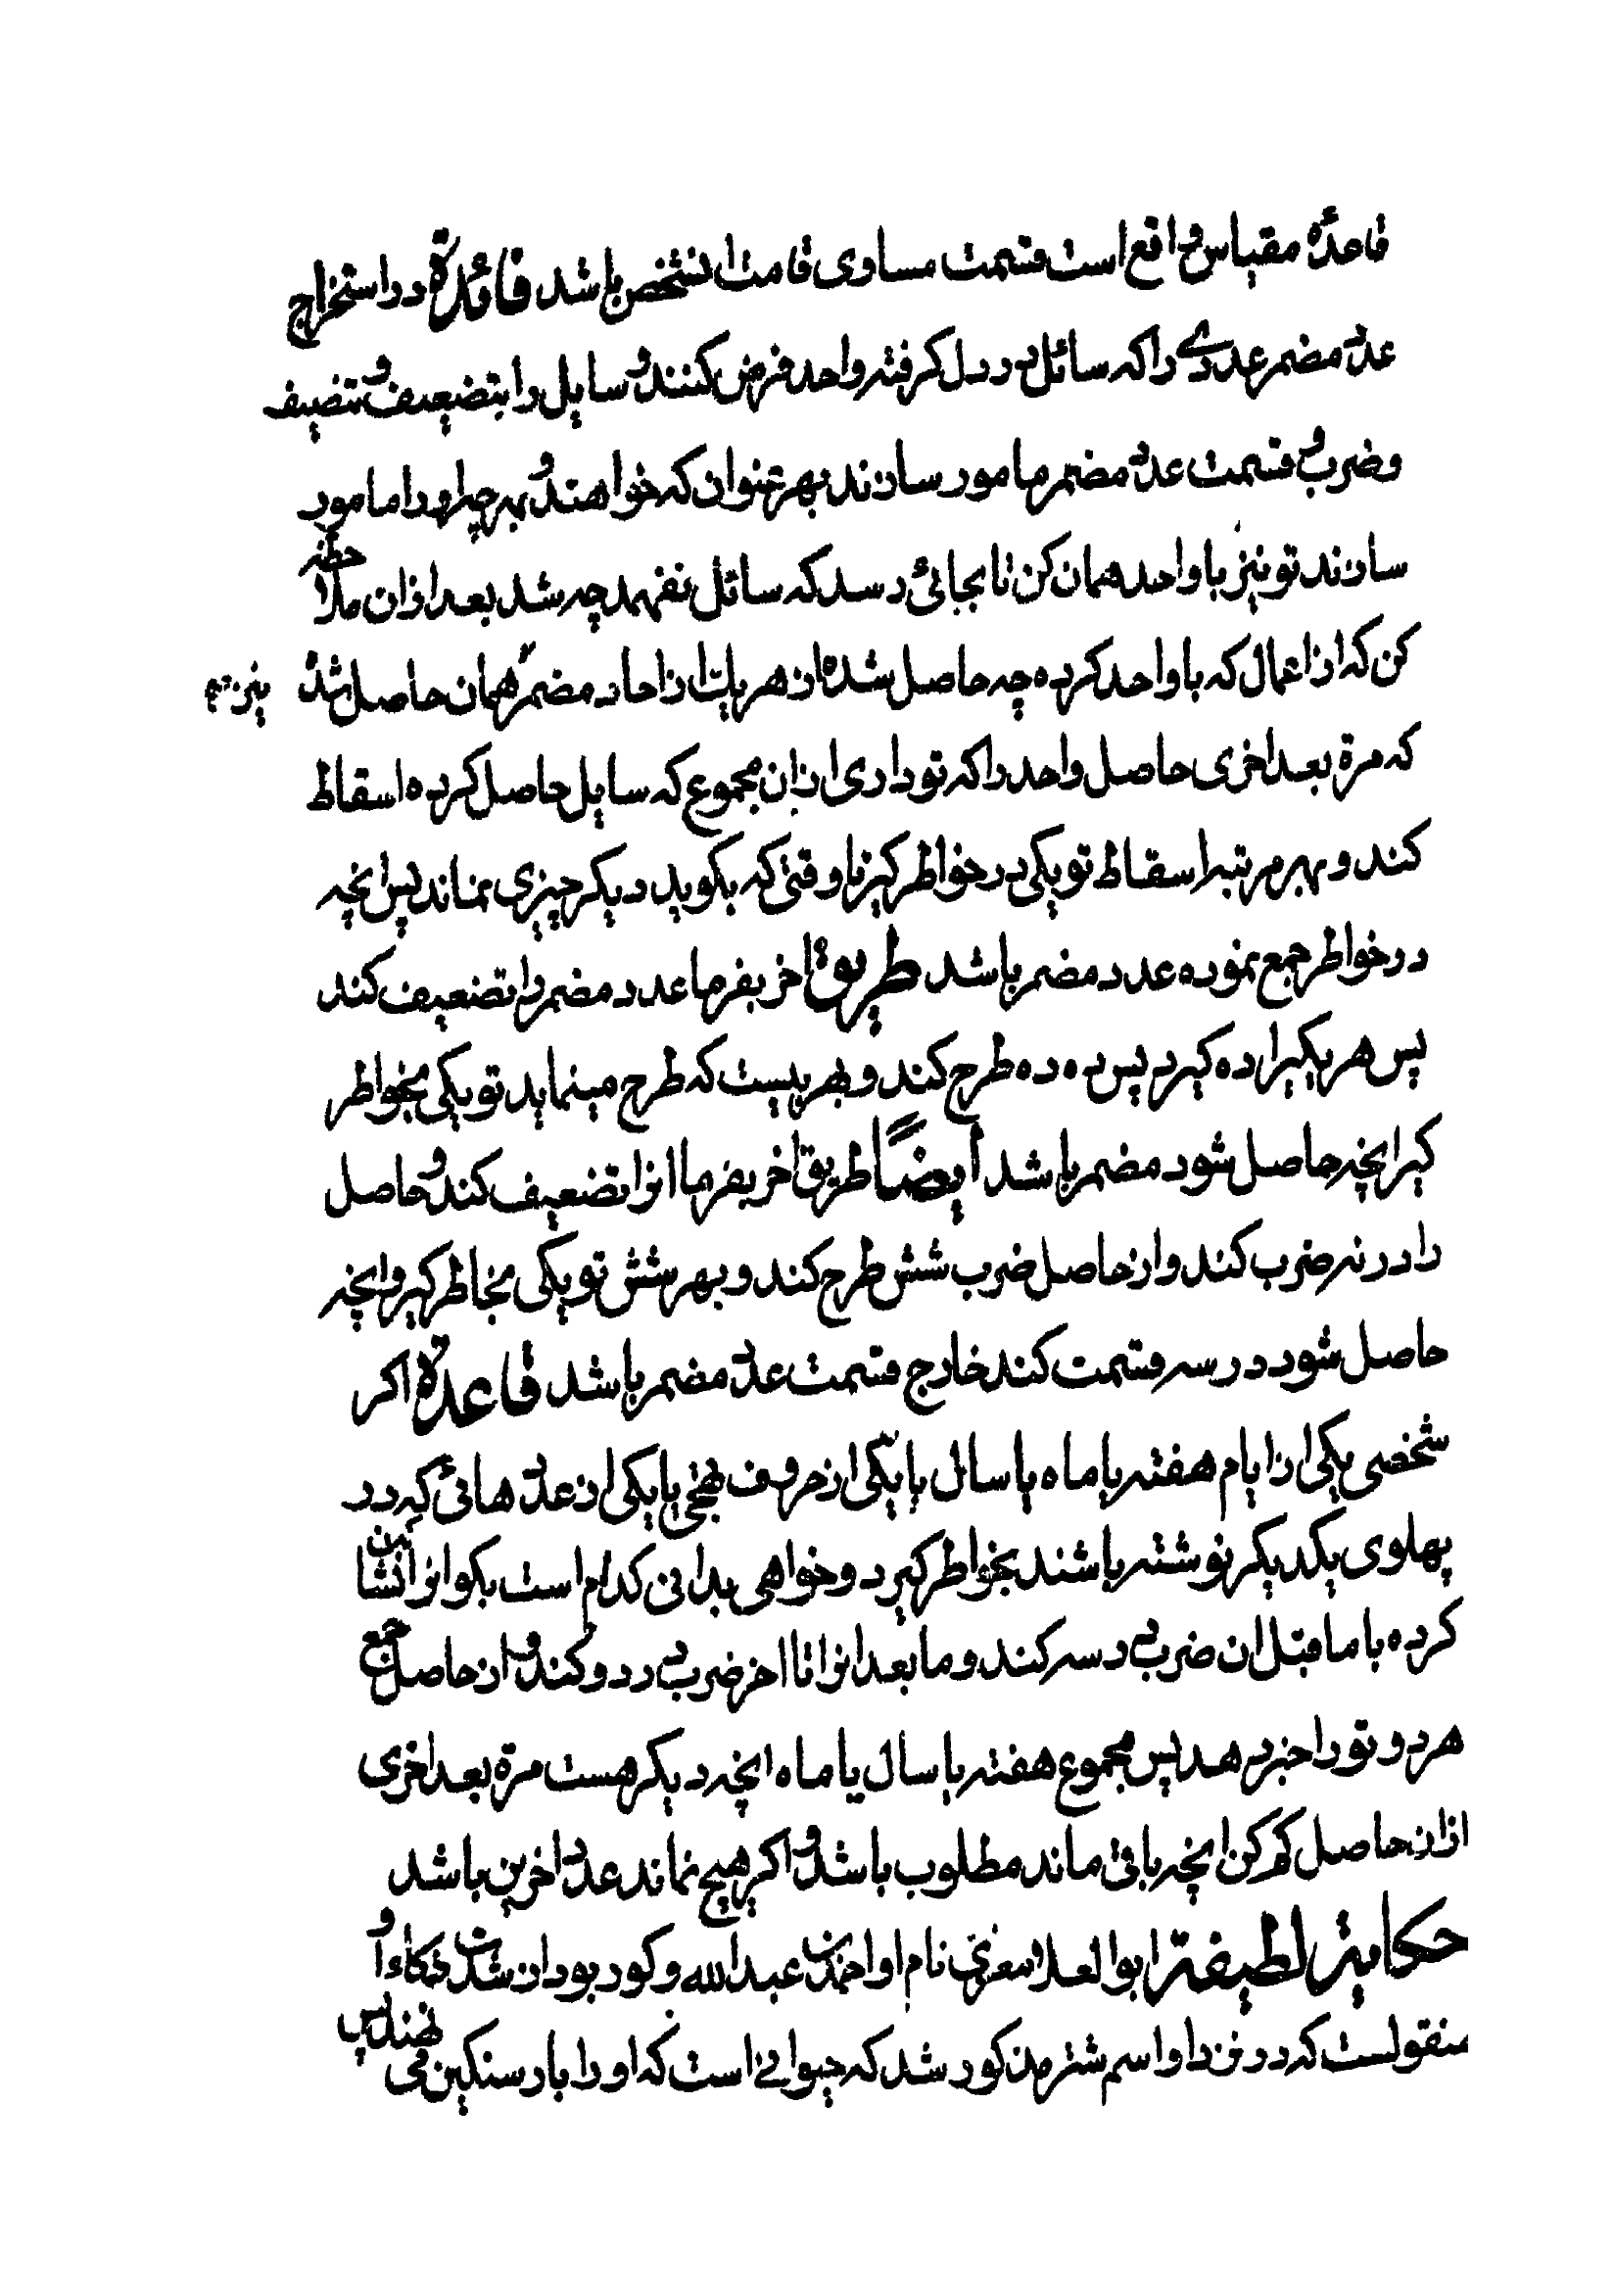 قاعدهٔ مقیاس واقع است قسمت مساوی قامت انشخص باشد فائدة در استخراج
عدد مضمر عددی را که سائل در دل کرفته واحد فرض کنند و سایل را بتضعیف و تنضیف
و ضرب و قسمت عدد مضمر مامور سازند بهر عنوان که خواهند و بهر چه او را مامور
سازند تو نیز با واحد همان کن تا بجائی رسد که سائل نفهمد چه شد بعد ازان ملاحظه
کن که از اعمال که با واحد کرده چه حاصل شده از هر یک از احاد مضمر همان حاصل شدهٔ
که مرة بعد اخری حاصل واحد را که تو داری ازان مجموع که سایل حاصل کرده اسقاط
کند و بهر مرتبه اسقاط تو یکی در خواطر کیر تا وقتی که بکوید دیکر چیزی نماند پس انچه
در خواطر جمع نموده عدد مضمر باشد طریق اخر بفرما عدد مضمر را تضعیف کند
پس هر یکیرا ده کیرد پس ده ده طرح کند و بهر بیست که طرح مینماید تو یکی بخواطر
کیر انچه حاصل شود مضمر باشد ایضًا طریق اخر بفرما انرا تضعیف کند و حاصل
را در نه ضرب کند و از حاصل ضرب شش طرح کند و بهر شش تو یکی بخاطر کیر و انچه
حاصل شود در سه قسمت کند خارج قسمت عدد مضمر باشد قاعدة اکر
شخصی یکی از ایام هفته یا ماه یا سال یا یکی از حروف تهجی یا یکی از عدد هائی که در
پهلوی یکدیکر نوشته باشند بخواطر کیرد و خواهی بدانی کدام است بکو انرا نشان
کرده با ماقبل ان ضرب در سه کند و مابعد انرا تا اخر ضرب در دو کند و از حاصل جمع
هر دو تو را خبر دهد پس مجموع هفته یا سال یا ماه انچه دیکر هست مرة بعد اخری
ازان حاصل کم کن انچه باقی ماند مطلوب باشد و اکر هیچ نماند عدد اخرین باشد
حکایة لطیفة ابوالعلا معری نام او احمد بن عبدالله و کور بود از شدت ذکاء او
منقولست که در نزد او اسم شتر مذکور شد که حیوانی است که او را بار سنکین می نهند پس